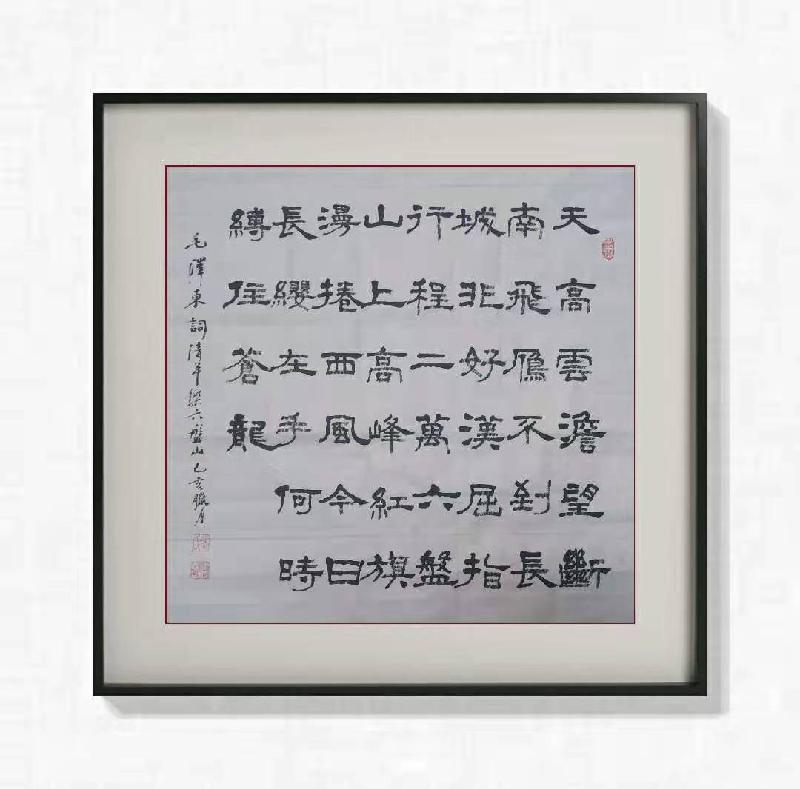 天高雲澹望斷
南飛鴈不到長
城非好漢屈指
行程二萬六盤
山上高峰紅旗
漫捲西風今日
長纓在手何時
縛住蒼龍
毛澤東詞清平樂六盤山己亥臘月